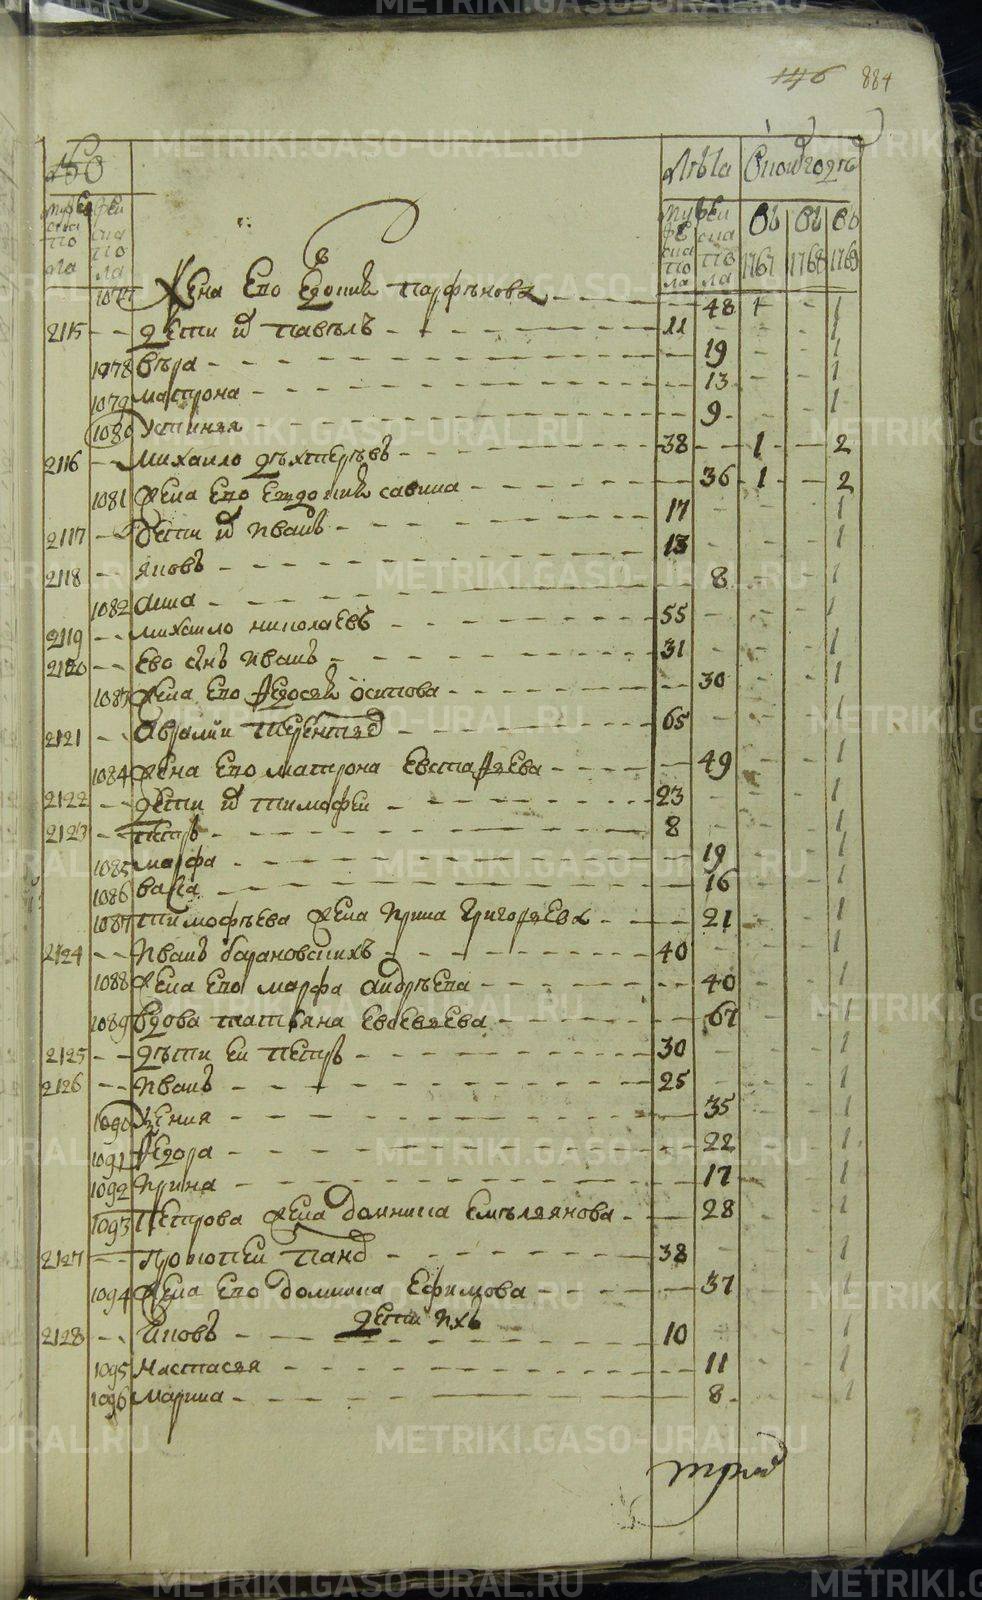 146 884
№
Лѣта
мужеска пола женска пола мужеска пола женска пола 1767 1768 1769
1077 Жена Ево Парфѣнова 48 1 1
2115 дети их Павелъ 11 1
1078 Вѣра 19 1
1079 Матрона 13 1
1080 Устинья 9 1
2116 Михаило 38 1 2
1081 Жена Ево Савина 36 1 2
2117 Дети их Иванъ 17 1
2118 Яковъ 13 1
1082 Анна 8 1
2119 Михаило Николаевъ 55 1
2120 Ево сынъ Иванъ 31 1
1083 Жена Ево Федосья Осипова 30 1
2121 Терентьев 65 1
1084 Жена Ево Матрона Евстафьева 49 1
2122 дети их Тимофеи 23 1
2123 Петръ 8 1
1085 Марфа 19 1
1086 Васа 16 1
1087 Тимофѣева Жена Ирина Григорьева 21 1
2124 Иванъ Барановскихъ 40 1
1088 Жена Ево Марфа Андрѣева 40 1
1089 Вдова Татьяна Евсевьева 67 1
2125 дѣти Еи Петръ 30 1
2126 Иванъ 25 1
1090 Ксения 35 1
1091 Федора 22 1
1092 Ирина 17 1
1093 Петрова Жена Домника Емельянова 28 1
2127 Прокопеи Панов 38 1
1094 Жена Ево Домника Ефимова 37 1
дети ихъ
2128 Яковъ 10 1
1095 Настасья 11 1
1096 Марина 8 1
METRIKI.GASO-URAL.RU